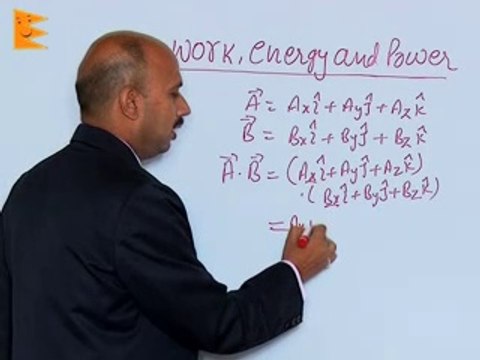 Work, Energy and Power
A⃗ = Axî + Ayĵ + Azk̂
B⃗ = Bxî + Byĵ + Bzk̂
A⃗ · B⃗ = (Axî + Ayĵ + Azk̂)
· (Bxî + Byĵ + Bzk̂)
= A